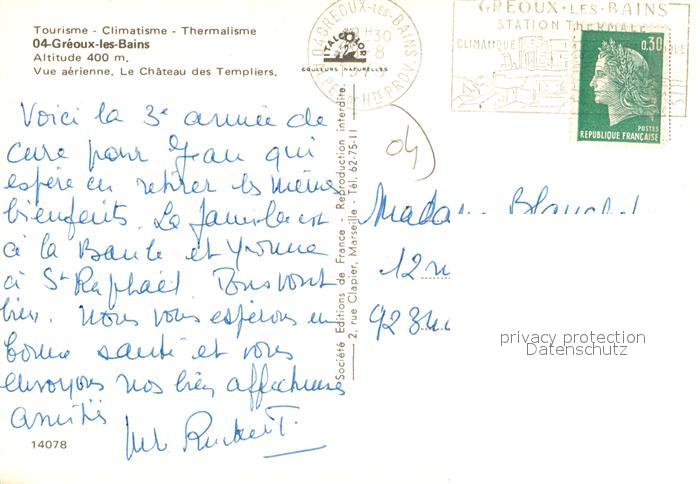 Tourisme - Climatisme - Thermalisme
04-Gréoux-les-Bains
Altitude 400 m.
Vue aérienne. Le Château des Templiers.
ITALCOLOR
COULEURS NATURELLES
GREOUX-LES-BAINS
STATION THERMALE
CLIMATIQUE
0.30
POSTES
REPUBLIQUE FRANÇAISE
04
Voici la 3e année de
cure pour Jean qui
espère en retirer les mêmes
bienfaits. La famille est
à la Baule et Yvonne
à St Raphaël Tous vont
bien. Nous vous espérons en
bonne santé et vous
envoyons nos bien affectueuses
amitiés
14078
Société Editions de France - Reproduction interdite.
2, rue Clapier, Marseille - Tél. 62-75-11
Madame
12
923
privacy protection
Datenschutz